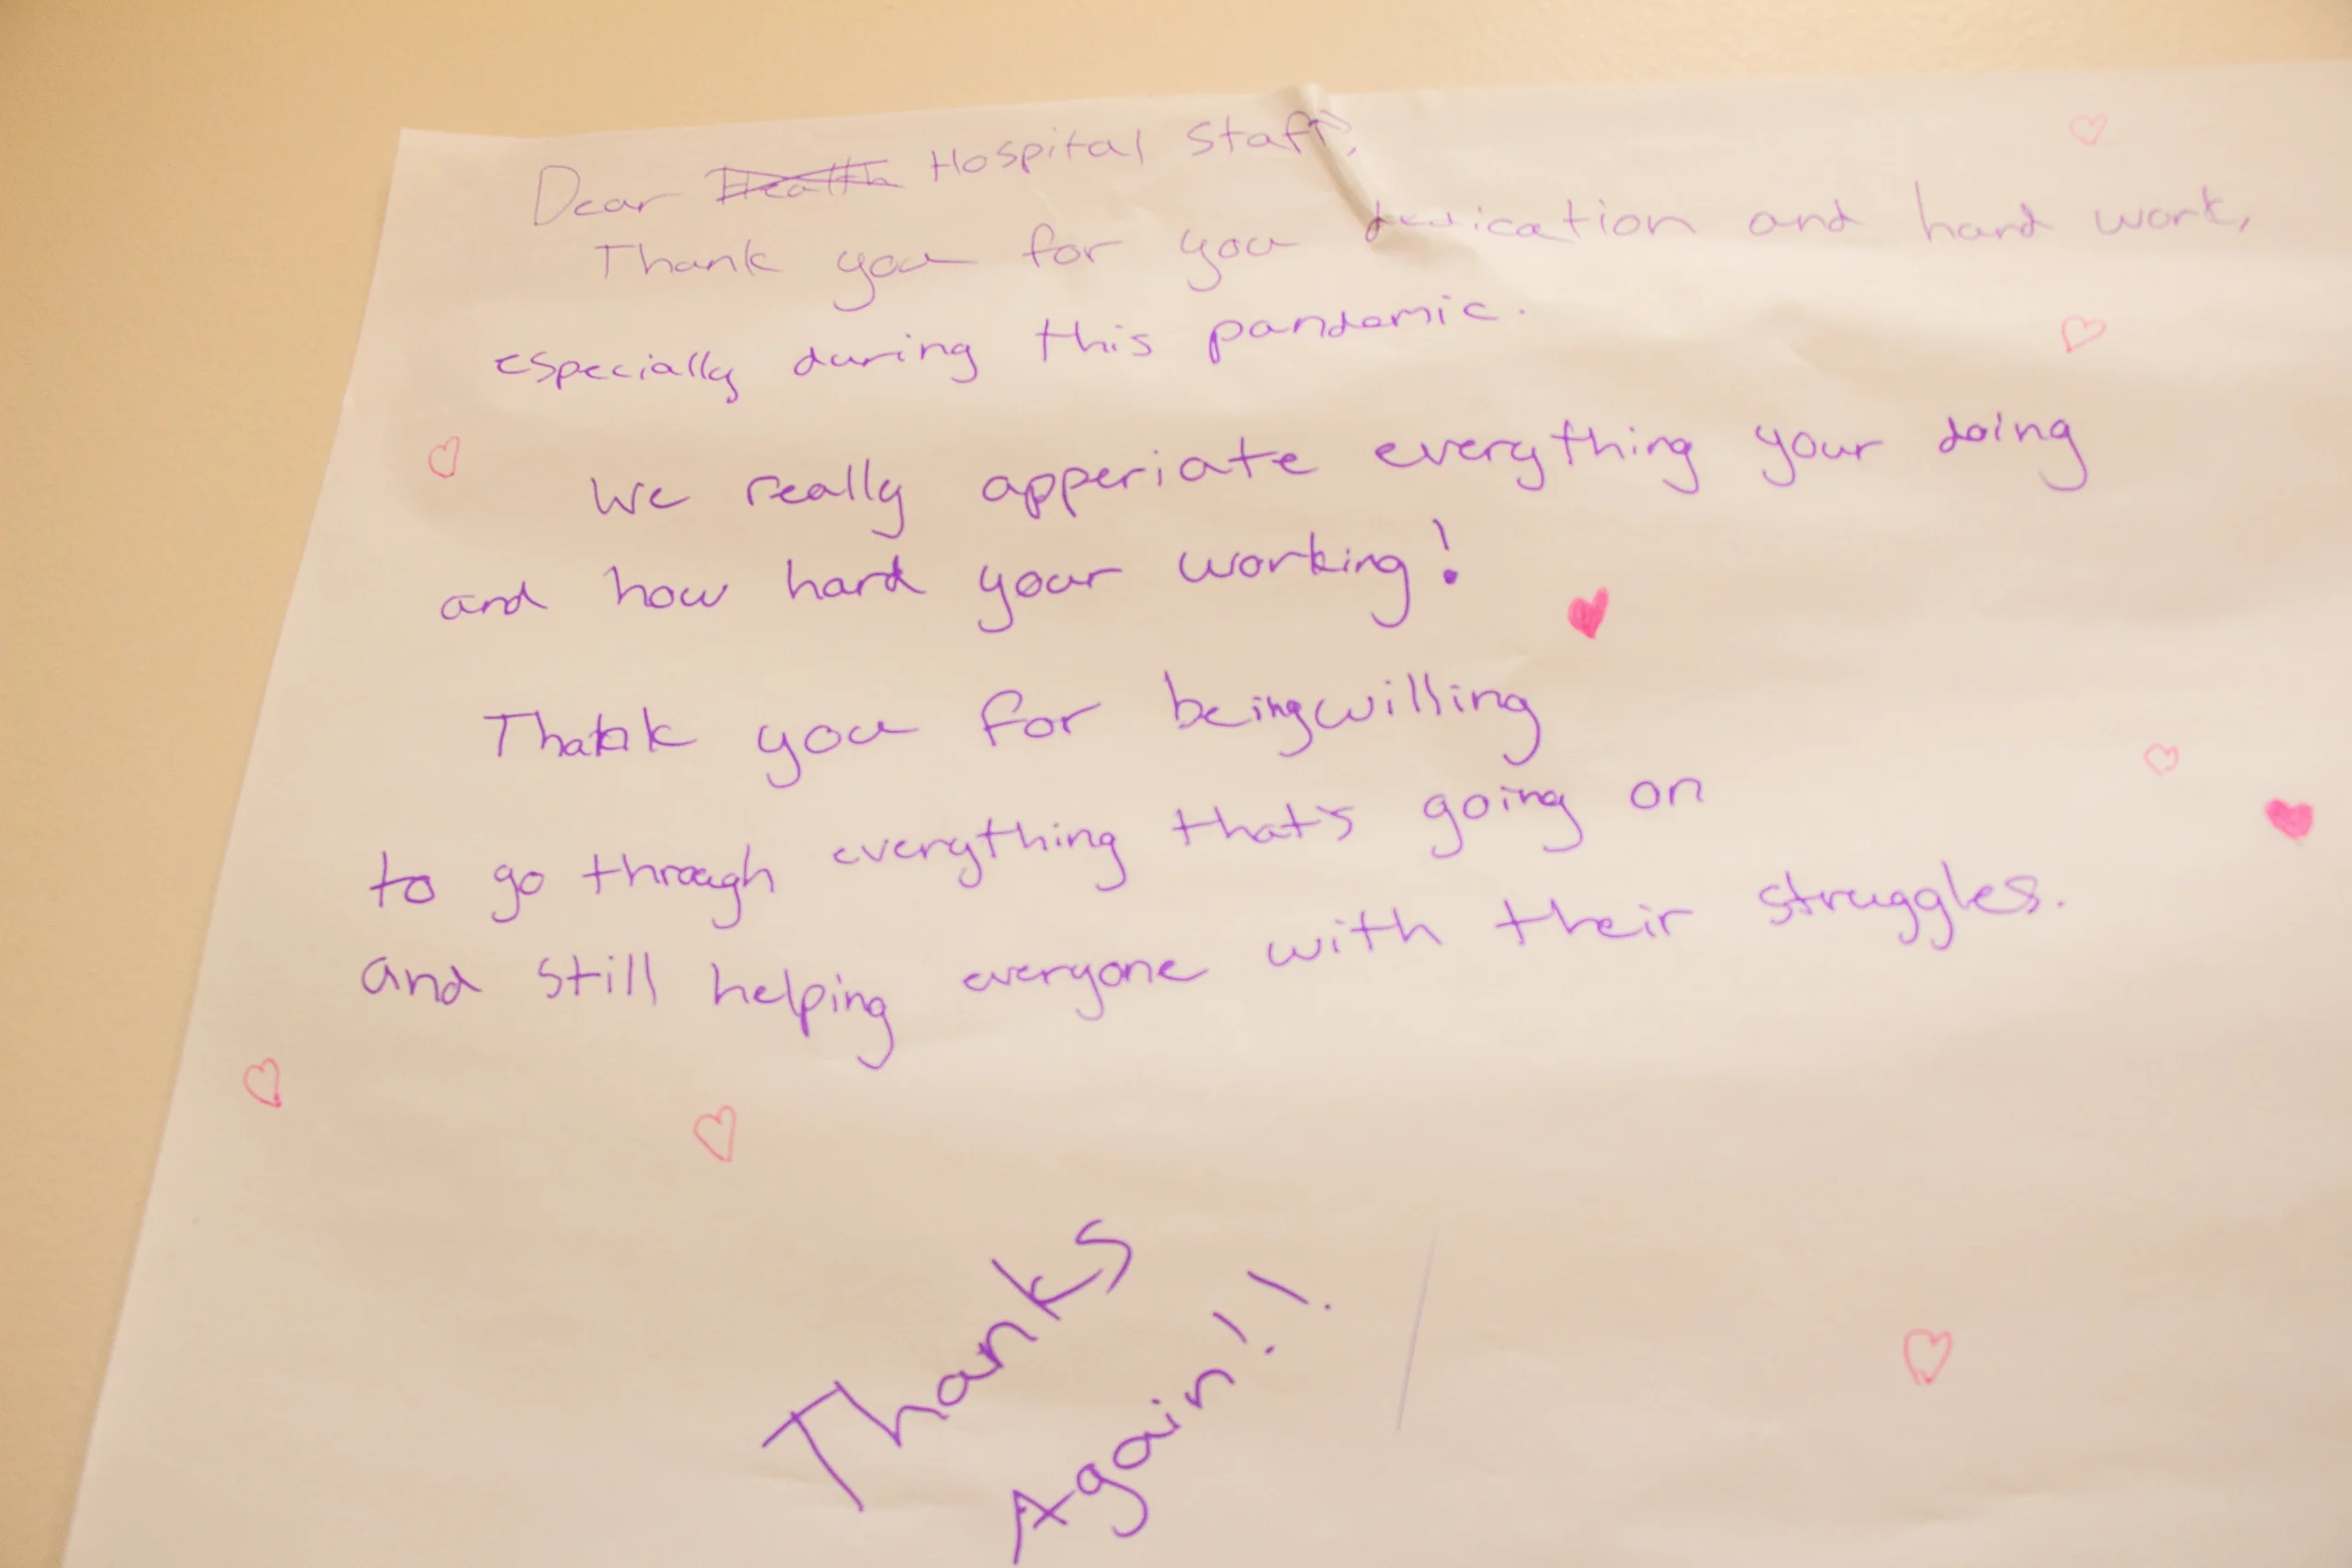 Dear Health Hospital Staff,
Thank you for you dedication and hard work,
especially during this pandemic.
We really apperiate everything your doing
and how hard your working!
Thank you for being willing
to go through everything that's going on
and still helping everyone with their struggles.
Thanks
Again!!